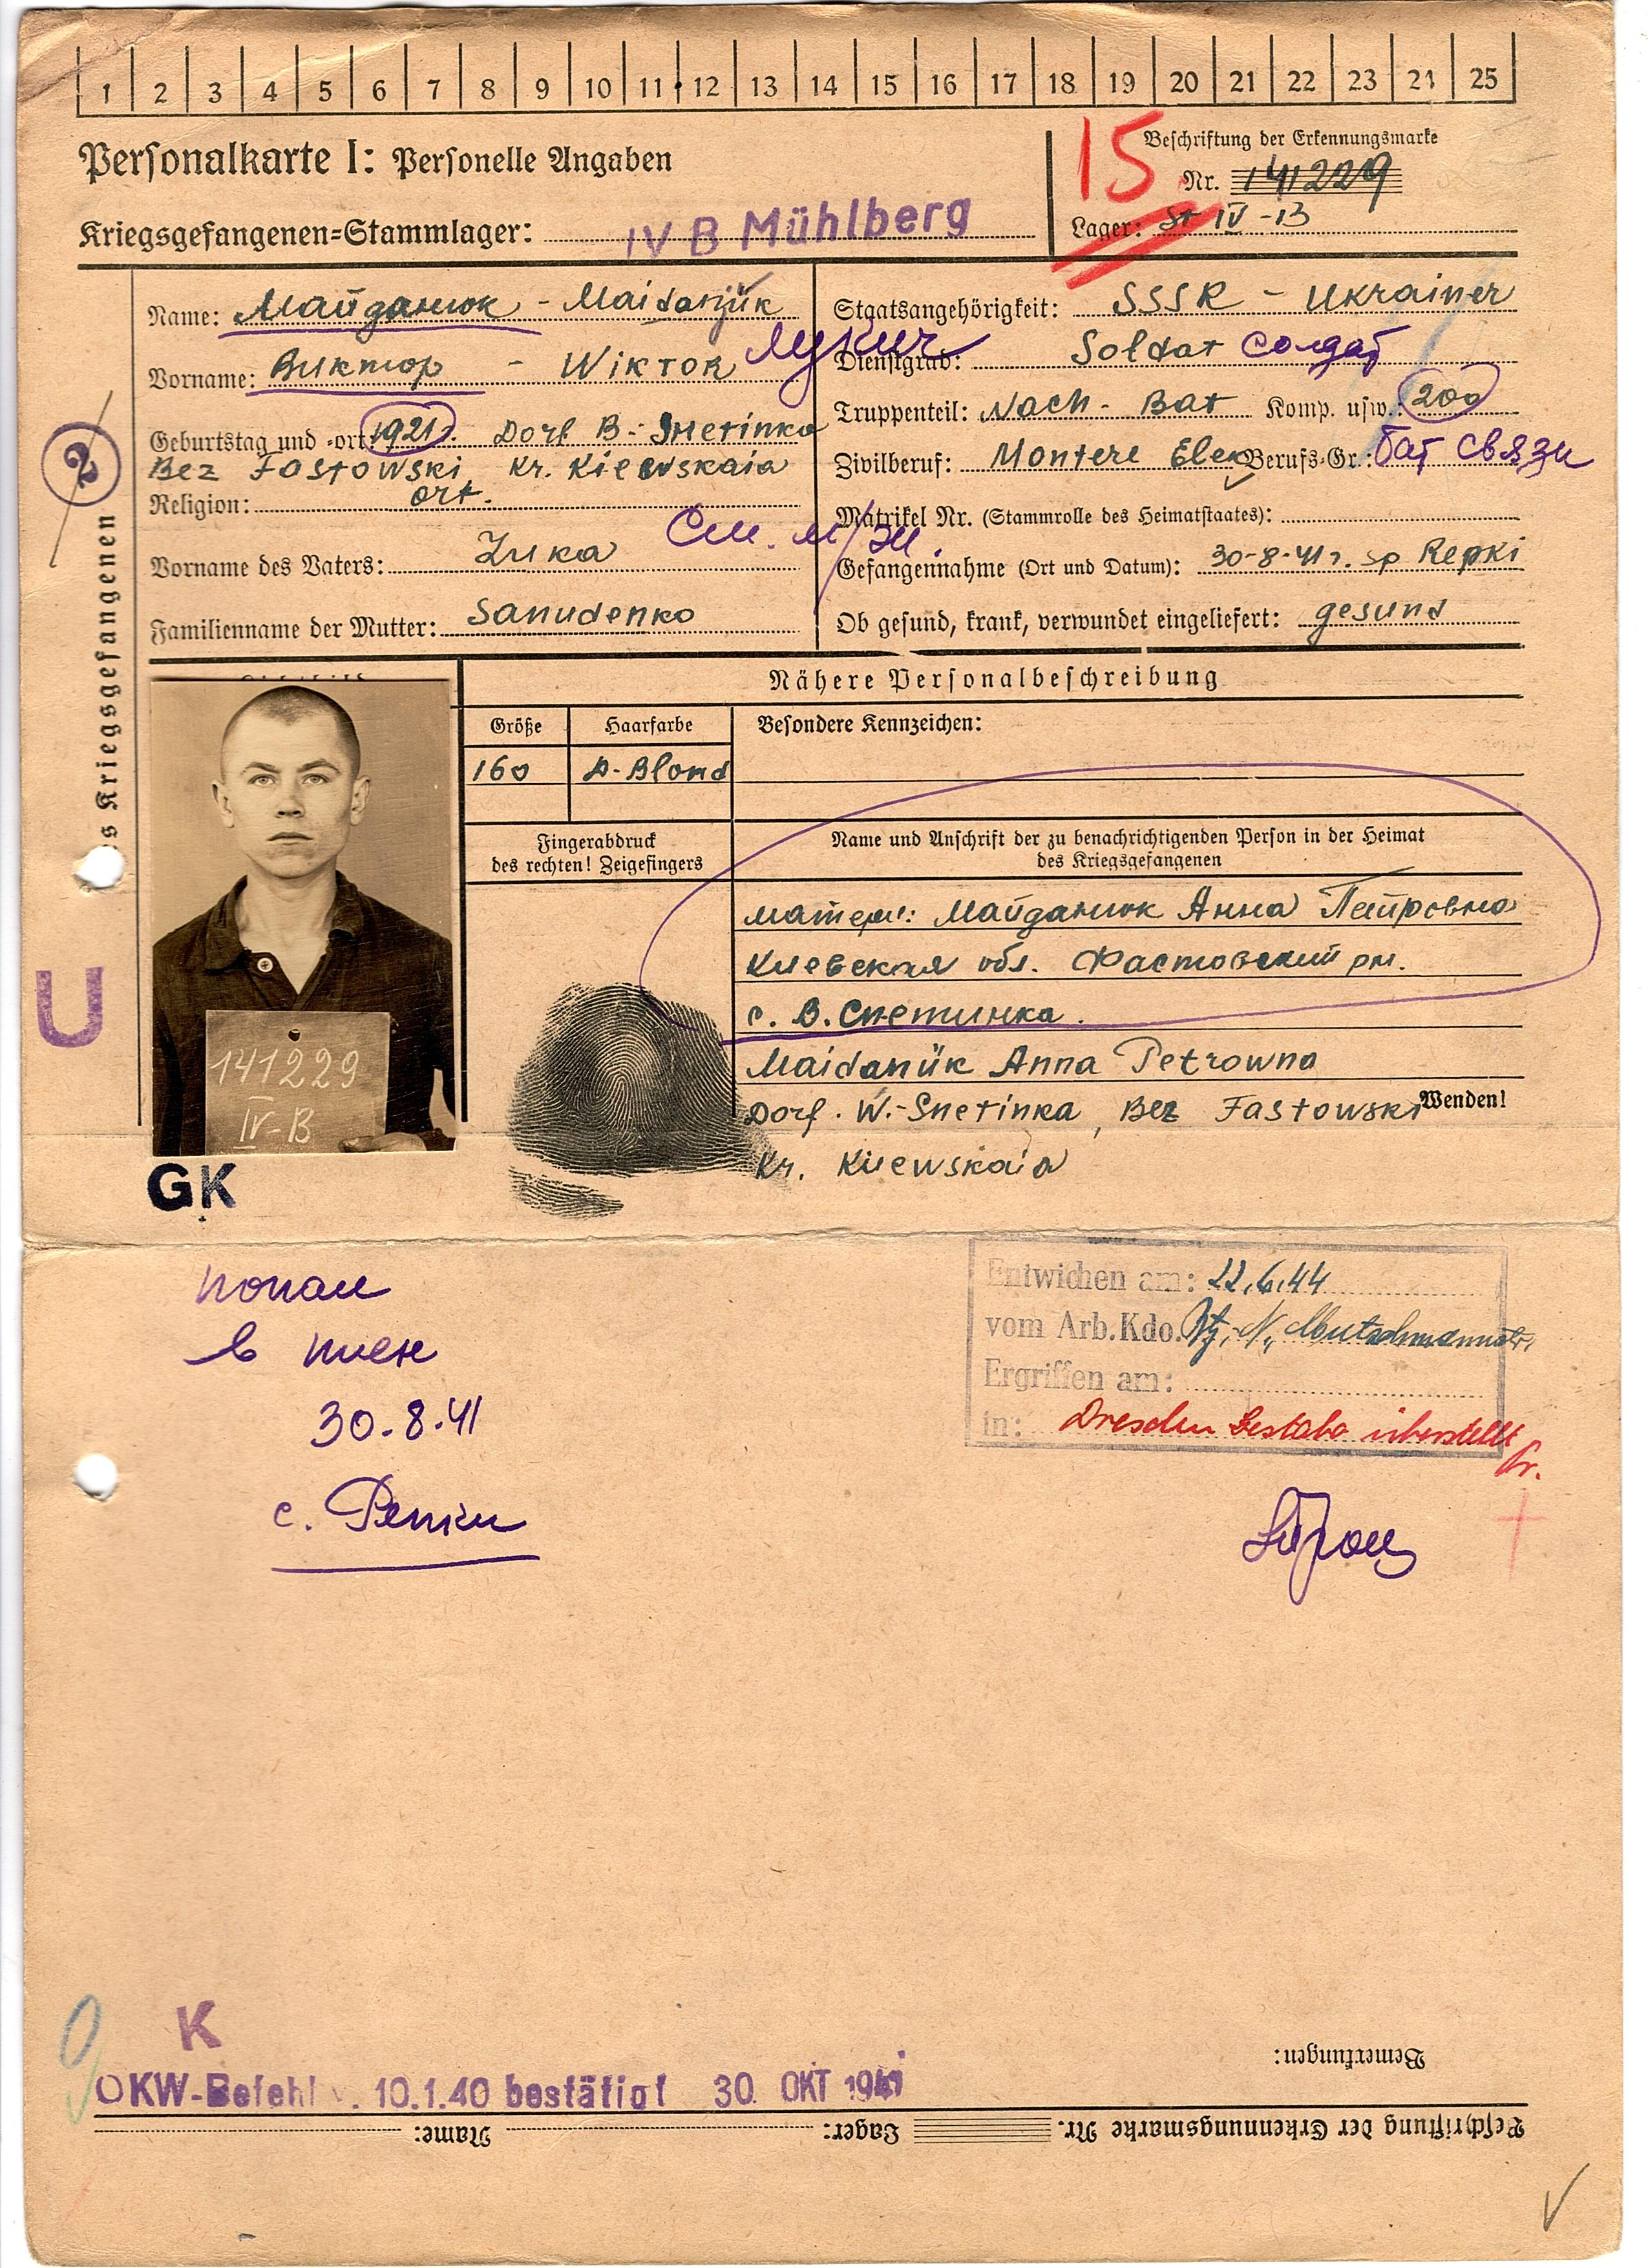 1 2 3 4 5 6 7 8 9 10 11 12 13 14 15 16 17 18 19 20 21 22 23 24 25
Personalkarte I: Personelle Angaben
Kriegsgefangenen=Stammlager: IV B Mühlberg
15
Beschriftung der Erkennungsmarke
Nr. 141229
Lager: St IV-B
Name: Майданюк - Maidanjük
Vorname: Виктор - Wiktor Лукич
Geburtstag und -ort: 1921г. Dorf B.-Snetinka
Bez Fastowski Kr. Kiewskaia
Religion: ort.
Vorname des Vaters: Luka
См. м/зн.
Familienname der Mutter: Sanudenko
Staatsangehörigkeit: SSSR - Ukrainer
Dienstgrad: Soldat солдат
Truppenteil: Nach-Bat Komp. usw.: 200
Zivilberuf: Montere Elek Berufs=Gr.: бат связи
Matrikel Nr. (Stammrolle des Heimatstaates):
Gefangennahme (Ort und Datum): 30-8-41г. Sp Repki
Ob gesund, krank, verwundet eingeliefert: gesund
2
es Kriegsgefangenen
Nähere Personalbeschreibung
Größe Haarfarbe Besondere Kennzeichen:
160 D-Blond
Fingerabdruck
des rechten! Zeigefingers
Name und Anschrift der zu benachrichtigenden Person in der Heimat
des Kriegsgefangenen
матери: Майданюк Анна Петровна
Киевская обл. Фастовский рн.
с. В. Снетинка.
Maidanük Anna Petrowna
Dorf. W.-Snetinka, Bez Fastowski
Wenden!
Kr. Kiewskaia
141229
IV-B
U
GK
попал
в плен
30.8.41
с. Репки
Entwichen am: 22.6.44
vom Arb.Kdo.
Ergriffen am:
in: Dresden Gestabo überstellt
K
OKW-Befehl v. 10.1.40 bestätigt 30. OKT 1941
Bemerkungen:
Beschriftung der Erkennungsmarke Nr. Lager: Name: